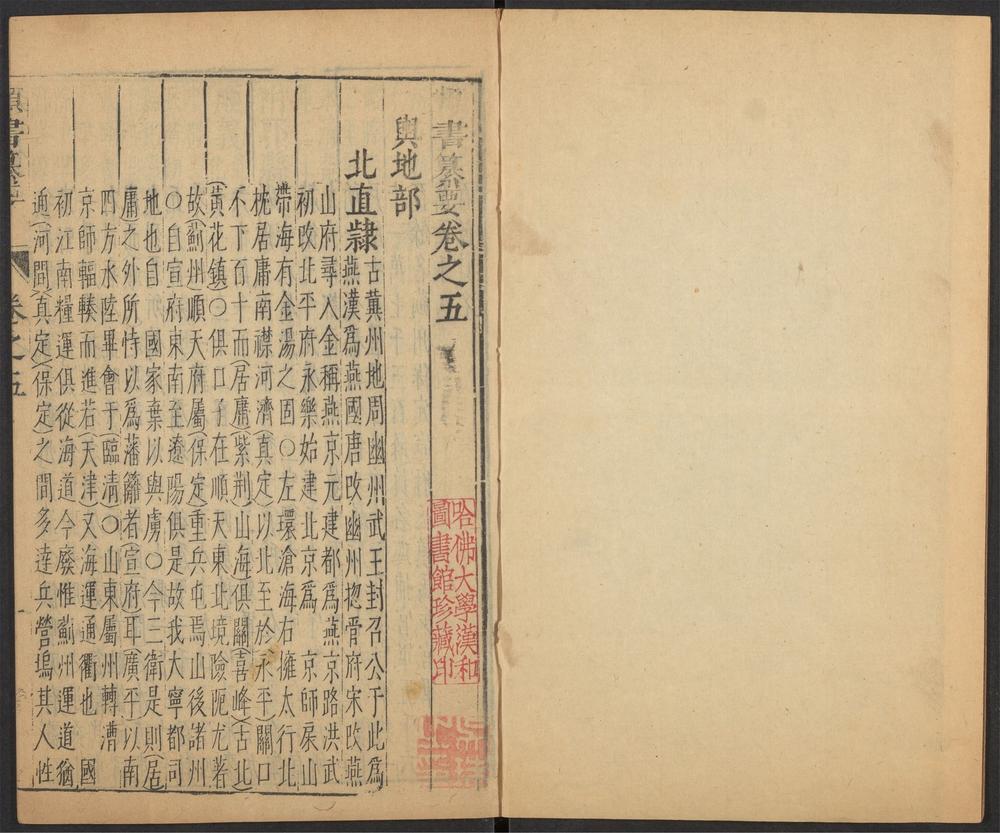 書纂要卷之五
輿地部
北直隸古冀州地周幽州武王封召公于此爲
燕漢爲燕國唐改幽州揔管府宋改燕
山府尋入金稱燕京元建都爲燕京路洪武
初改北平府永樂始建北京爲 京師扆山
帶海有金湯之固○左環滄海右擁太行北
枕居庸南襟河濟(真定)以北至於(永平)關口
不下百十而(居庸)(紫荆)(山海)俱關(喜峰)(古北)
(黃花鎮)○俱口子在順天東北境險阨尤著
故(薊州)順天府屬(保定)重兵屯焉山後諸州
○自宣府東南至遼陽俱是故我大寧都司
地也自 國家棄以與虜○今三衛是則(居
庸)之外所恃以爲藩籬者(宣府)耳(廣平)以南
四方水陸畢會于(臨清)○山東屬州轉漕
京師輻輳而進若(天津)又海運通衢也 國
初江南糧運俱從海道今廢惟薊州運道猶
通(河間)(真定)(保定)之間多達兵營塢其人性
書纂
卷之五
一
哈佛大學漢和
圖書館珍藏印